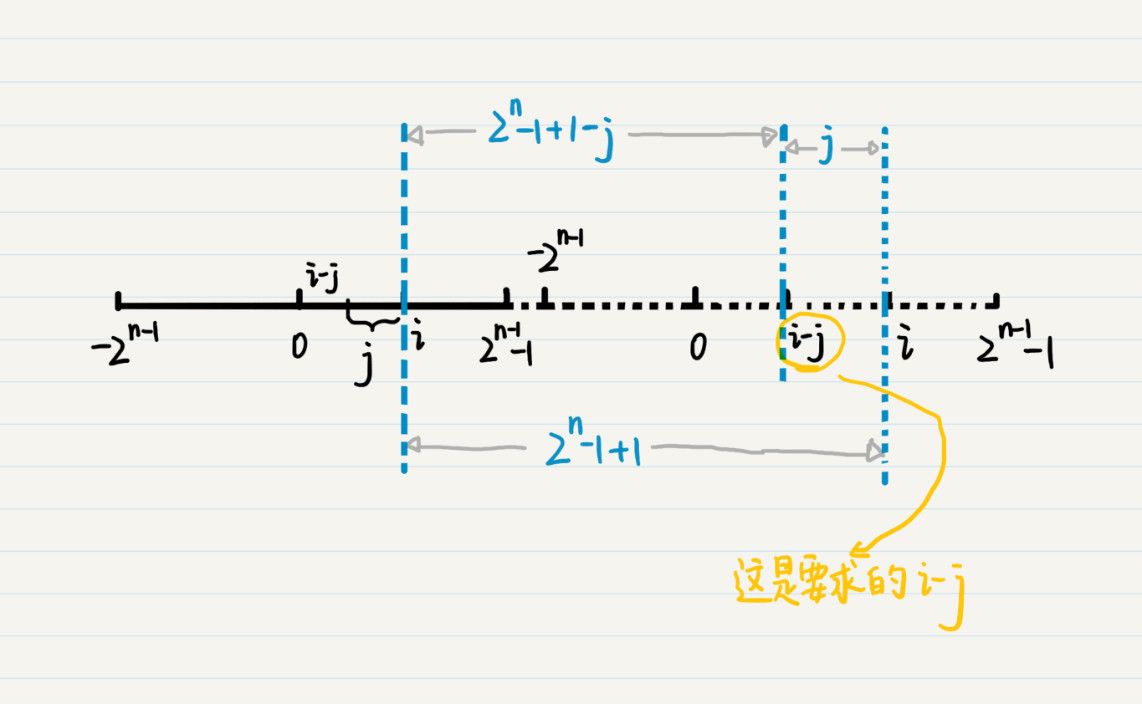 2ⁿ-1+1-j
j
-2ⁿ⁻¹
i-j
-2ⁿ⁻¹ 0 j i 2ⁿ⁻¹-1 0 i-j i 2ⁿ⁻¹-1
2ⁿ-1+1
这是要求的 i-j